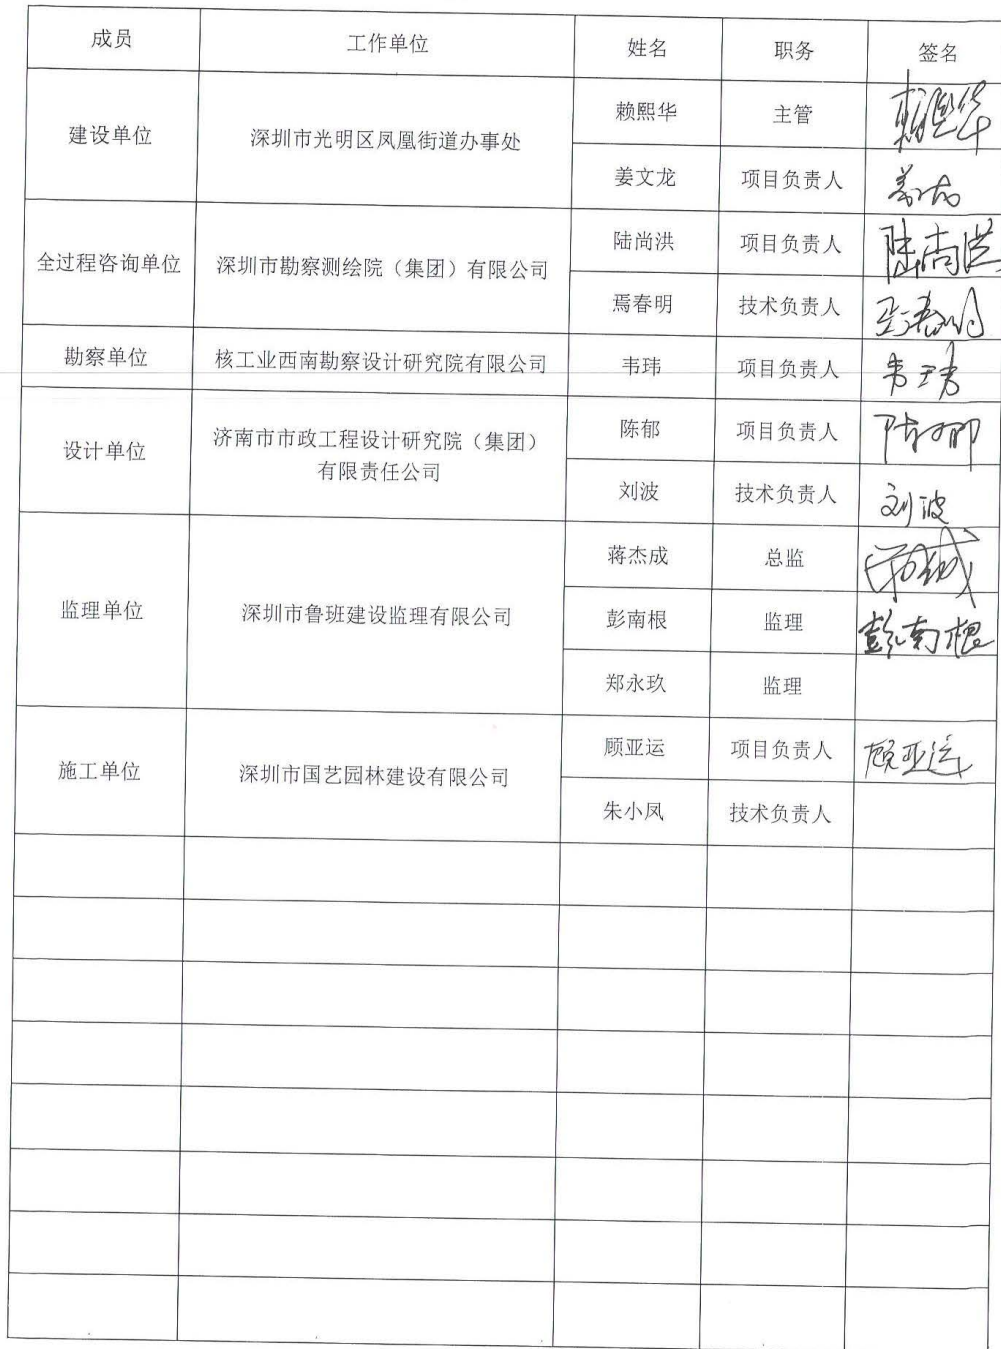 成员 工作单位 姓名 职务 签名
建设单位 深圳市光明区凤凰街道办事处 赖熙华 主管 赖熙华
姜文龙 项目负责人
全过程咨询单位 深圳市勘察测绘院（集团）有限公司 陆尚洪 项目负责人 陆尚洪
焉春明 技术负责人 焉春明
勘察单位 核工业西南勘察设计研究院有限公司 韦玮 项目负责人 韦玮
设计单位 济南市市政工程设计研究院（集团）
有限责任公司 陈郁 项目负责人 陈郁
刘波 技术负责人 刘波
监理单位 深圳市鲁班建设监理有限公司 蒋杰成 总监
彭南根 监理 彭南根
郑永玖 监理
施工单位 深圳市国艺园林建设有限公司 顾亚运 项目负责人 顾亚运
朱小凤 技术负责人